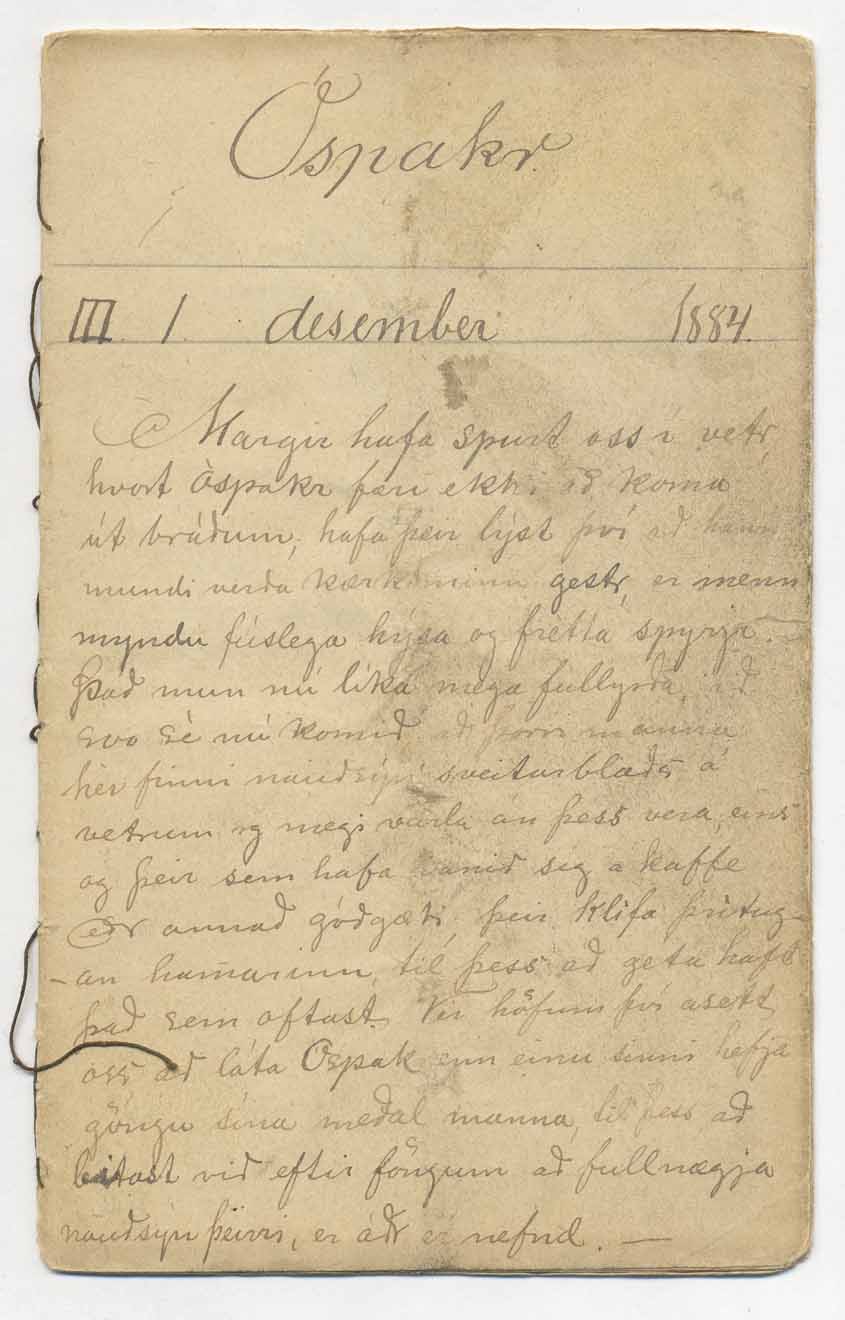 Óspakr.
III. 1. desember 1884.
Margir hafa spurt oss í vetr,
hvort Óspakr færi ekki að koma
út bráðum, hafa þeir lýst því að hann
mundi verða kærkominn gestr, er menn
myndu fúslega hýsa og frétta spyrja. –
Það mun nú líka mega fullyrða, að
svo sé nú komið að þorri manna
hér finni nauðsýn sveitarblaðs á
vetrum og megi varla án þess vera, eins
og þeir sem hafa vanið sig a kaffe
eðr annað góðgæti, þeir klífa þrítug-
-an hamarinn, til þess að geta haft
það sem oftast. Vér höfum því asett
oss að láta Óspak enn einu sinni hefja
göngu sína meðal manna, til þess að
leitast við eftir föngum að fullnægja
nauðsýn þeirri, er áðr er nefnd. —